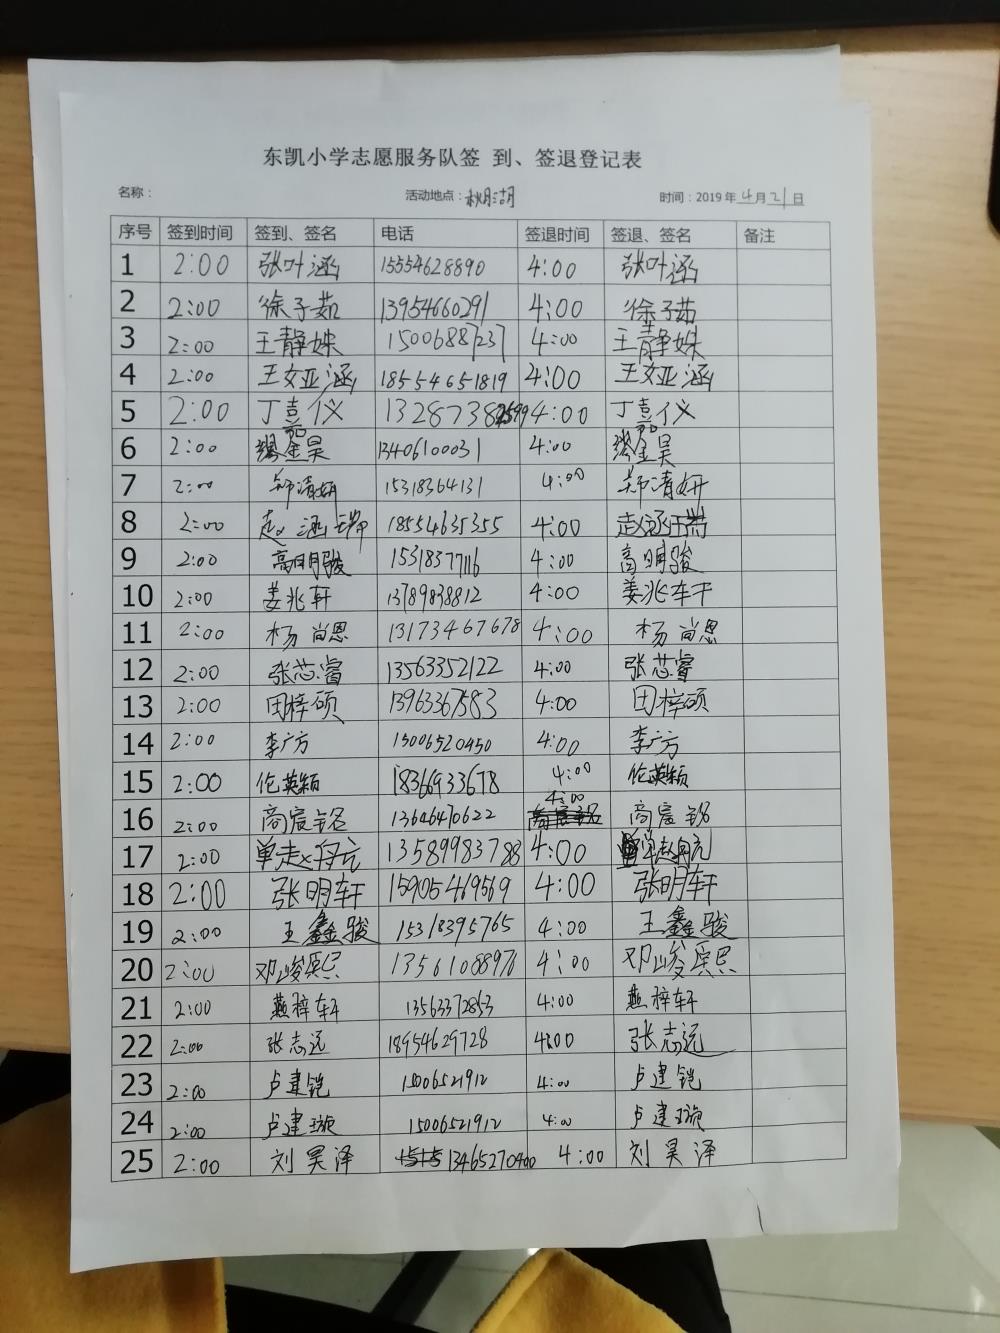 东凯小学志愿服务队签 到、签退登记表
名称： 活动地点：秋月湖 时间：2019年4月21日
序号 签到时间 签到、签名 电话 签退时间 签退、签名 备注
1 2:00 张叶涵 15554628890 4:00 张叶涵
2 2:00 徐子茹 13954660291 4:00 徐子茹
3 2:00 王静姝 15006887237 4:00 王静姝
4 2:00 王文亚涵 18554651819 4:00 王文亚涵
5 2:00 丁嘉仪 4:00 丁嘉仪
6 2:00 13406100031 4:00
7 2:00 郑清妍 15318364131 4:00 郑清妍
8 2:00 赵涵瑞 18554635355 4:00 赵涵瑞
9 2:00 高明骏 15318377116 4:00 高明骏
10 2:00 姜兆轩 13789838812 4:00 姜兆轩
11 2:00 杨尚恩 13173467678 4:00 杨尚恩
12 2:00 张芯睿 13563352122 4:00 张芯睿
13 2:00 田梓硕 13963367583 4:00 田梓硕
14 2:00 李广方 15006520450 4:00 李广方
15 2:00 伦英颖 18366933678 4:00 伦英颖
16 2:00 商宸铭 13646470622 4:00 商宸铭
17 2:00 单赵 13589983788 4:00 单赵
18 2:00 张明轩 15905469569 4:00 张明轩
19 2:00 王鑫骏 15318395765 4:00 王鑫骏
20 2:00 邓峻熙 13561088976 4:00 邓峻熙
21 2:00 燕梓轩 13563372853 4:00 燕梓轩
22 2:00 张志远 18954629728 4:00 张志远
23 2:00 卢建铠 15006521912 4:00 卢建铠
24 2:00 卢建璇 15006521912 4:00 卢建璇
25 2:00 刘昊泽 13465270400 4:00 刘昊泽